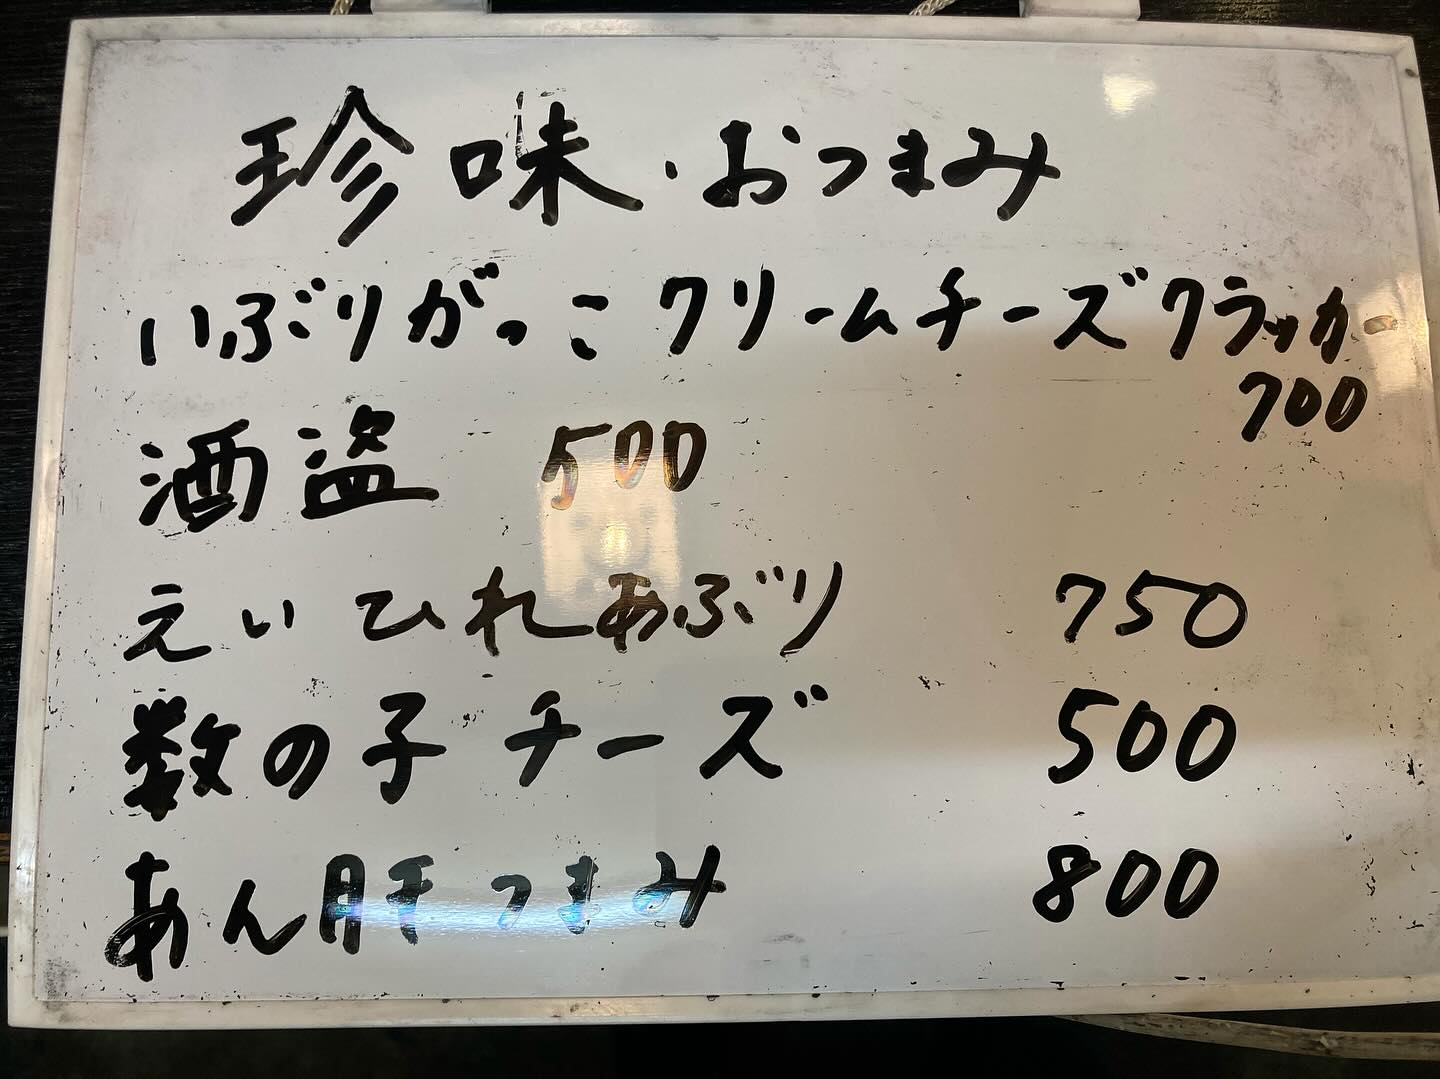 珍味・おつまみ
いぶりがっこクリームチーズクラッカー
700
酒盗 500
えいひれあぶり 750
数の子チーズ 500
あん肝つまみ 800